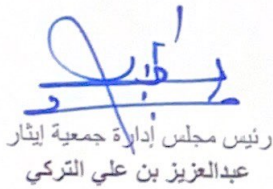 رئيس مجلس إدارة جمعية إيثار
عبدالعزيز بن علي التركي